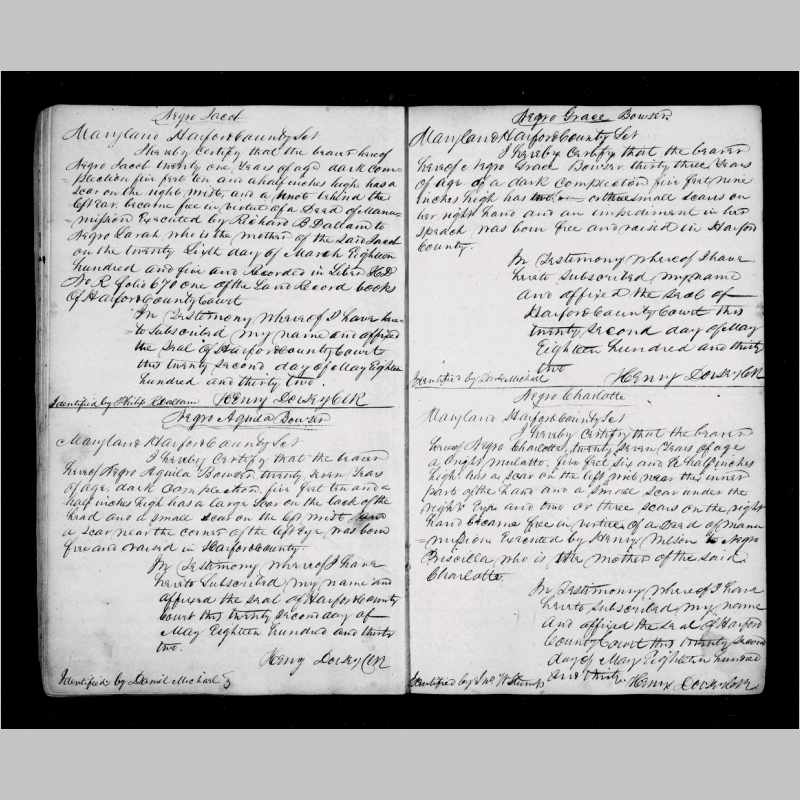 Negro Jacob
Maryland Harford County Set
I hereby Certify that the bearer hereof
Negro Jacob twenty one Years of age dark Com=
=plection five feet ten and a half inches high has a
Scar on the right wrist, and a knot behind the
left Ear. became free in virtue of a Deed of Manu=
=mission Executed by Richard B Dallam to
Negro Sarah who is the mother of the said Jacob
on the twenty Sixth day of March Eighteen
hundred and five and Recorded in Liber H D
No R folio 670 one of the Land Record books
Of Harford County Court
In Testimony whereof I have here=
to Subscribed my name and affixed
the Seal of Harford County Court
this twenty Second day of May Eighteen
hundred and thirty two.
Identified by Philip Dallam Henry Dorsey Clk
Negro Aquila Bowser
Maryland Harford County Set
I hereby Certify that the bearer
hereof Negro Aquila Bowser twenty seven Years
of age, dark Complection, five feet ten and a
half inches high has a large Scar on the back of the
head and a small Scar on the left wrist
a scar near the corner of the left Eye, was born
free and raised in Harford County.
In Testimony whereof I have
hereto Subscribed my name and
affixed the Seal of Harford County
Court this twenty Second day of
May Eighteen hundred and thirty
two.
Henry Dorsey Clk
Identified by Daniel Michael
Negro Grace Bowser
Maryland Harford County Set
I hereby Certify that the bearer
hereof Negro Grace Bowser thirty three Years
of age of a dark Complection five feet nine
inches high has two or three small Scars on
her right hand and an impediment in her
speach was born free and raised in Harford
County.
In Testimony whereof I have
hereto Subscribed my name
and affixed the Seal of
Harford County Court this
twenty Second day of May
Eighteen hundred and thirty
two
Identified by Michael Henry Dorsey Clk
Negro Charlotte
Maryland Harford County Set
I hereby Certify that the bearer
hereof Negro Charlotte, twenty Seven Years of age
a bright mulatto, five feet Six and a half inches
high, has a Scar on the left wrist near the inner
part of the hand and a small Scar under the
right Eye and two or three Scars on the right
hand became free in virtue of a Deed of manu=
=mission Executed by Henry Wilson to Negro
Priscilla, who is the mother of the said
Charlotte.
In Testimony whereof I have
hereto Subscribed my name
and affixed the Seal of Harford
County Court this twenty Second
day of May Eighteen hundred
and thirty
Identified by Jno W Stump Henry Dorsey Clk